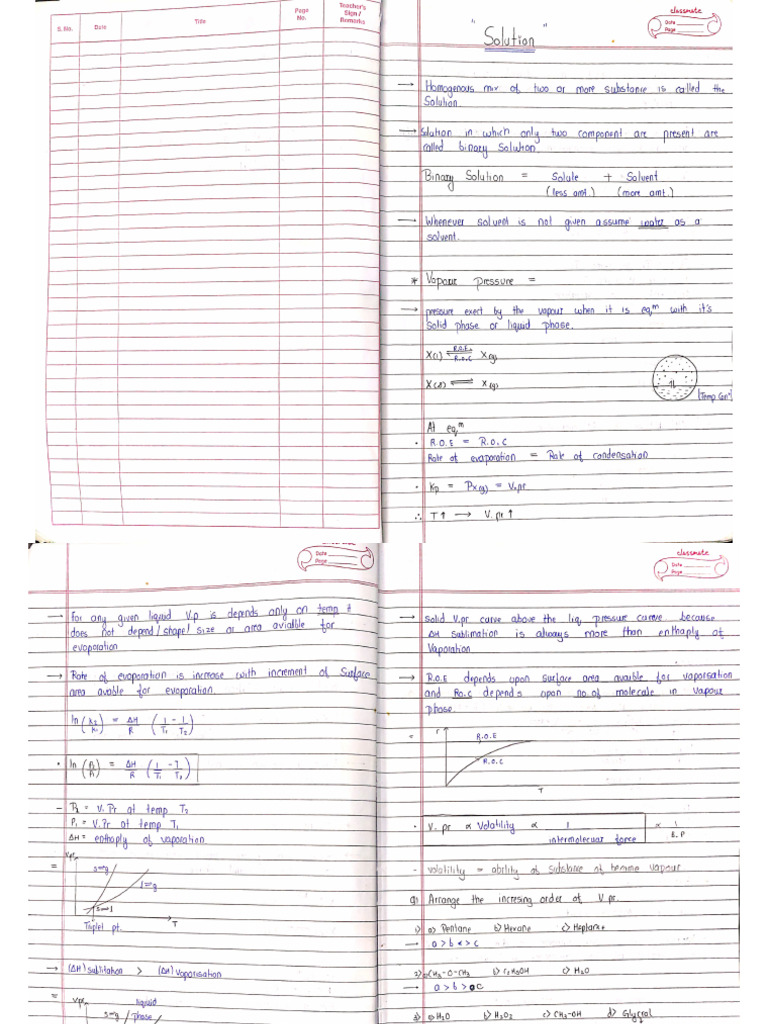 S. No.
Date
Title
Page No.
Teacher's Sign / Remarks
classmate
Date
Page
" Solution "
→ Homogenous mix of two or more substance is called the
Solution.
→ Solution in which only two component are present are
called binary Solution.
Binary Solution = Solute + Solvent
(less amt.) (more amt.)
→ Whenever solvent is not given assume water as a
solvent.
* Vapour pressure =
→ pressure exert by the vapour when it is eqᵐ with it's
Solid phase or liquid phase.
X(l) ⇌ X(g)
R.O.E
R.O.C
X(s) ⇌ X(g)
At eqᵐ
• R.O.E = R.O.C
Rate of evaporation = Rate of condensation
• Kp = Px(g) = V.pr
∴ T↑ → V.pr↑
Date
Page
→ For any given liquid V.p is depends only on temp &
does not depend/shape/size or area avialble for
evaporation
→ Rate of evaporation is increase with increment of Surface
area avable for evaporation.
ln (K2/K1) = ΔH/R (1/T1 - 1/T2)
P1 = V.Pr at temp T1
ΔH = enthaply of vaporation.
V.pr
s⇌g
l⇌g
s⇌l
T
Triplet pt.
→ (ΔH) sublitation > (ΔH) vaporisation
= V.pr
liquid
s⇌g phase
classmate
Date
Page
→ Solid V.pr curve above the liq pressure curve because
ΔH sublimation is always more than enthaply of
Vaporation
→ R.O.E depends upon surface area avaible for vaporsation
and Ro.c depends upon no.of molecule in vapour
phase.
R.O.E
R.O.C
T
• V. pr ∝ Volatility ∝ 1/intermolecular force ∝ 1/B.P
- volatility = ability of substance of become vapour
Q) Arrange the incresing order of V.pr.
1) a) Pentane b) Hexane c) Heptane
2) a) CH3-O-CH3 b) C2H5OH c) H2O
a) H2O b) H2O2 c) CH3-OH d) Glycrol